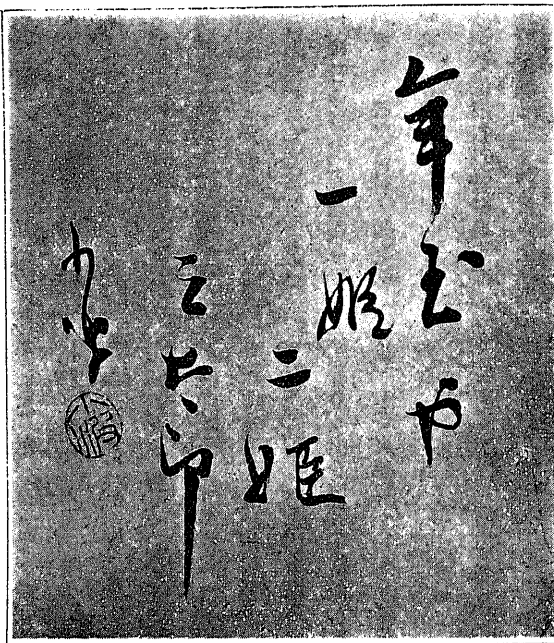 年玉や
一姫
二姫
三太郎